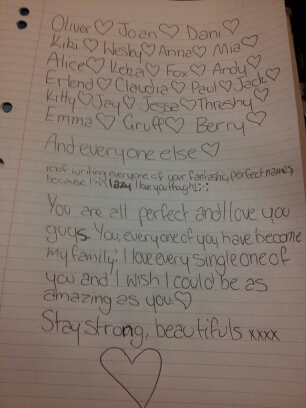 Oliver♡ Joan♡ Dani♡
Kibi♡ Wesley♡Anna♡ Mia♡
Alice♡ Keka♡ Fox♡ Andy♡
Erlend♡Claudia♡ Paul♡Jack♡
Kitty♡Jay♡Jesse♡Threshy♡
Emma♡ Gruff♡ Berry♡
And everyone else♡
writing everyone of your fantastic, perfect names,
because I'm lazy I love you though
You are all perfect and I love you
guys. You, everyone of you, have become
my family; I love every single one of
you and I wish I could be as
amazing as you.♡
Stay strong, beautifuls xxxx